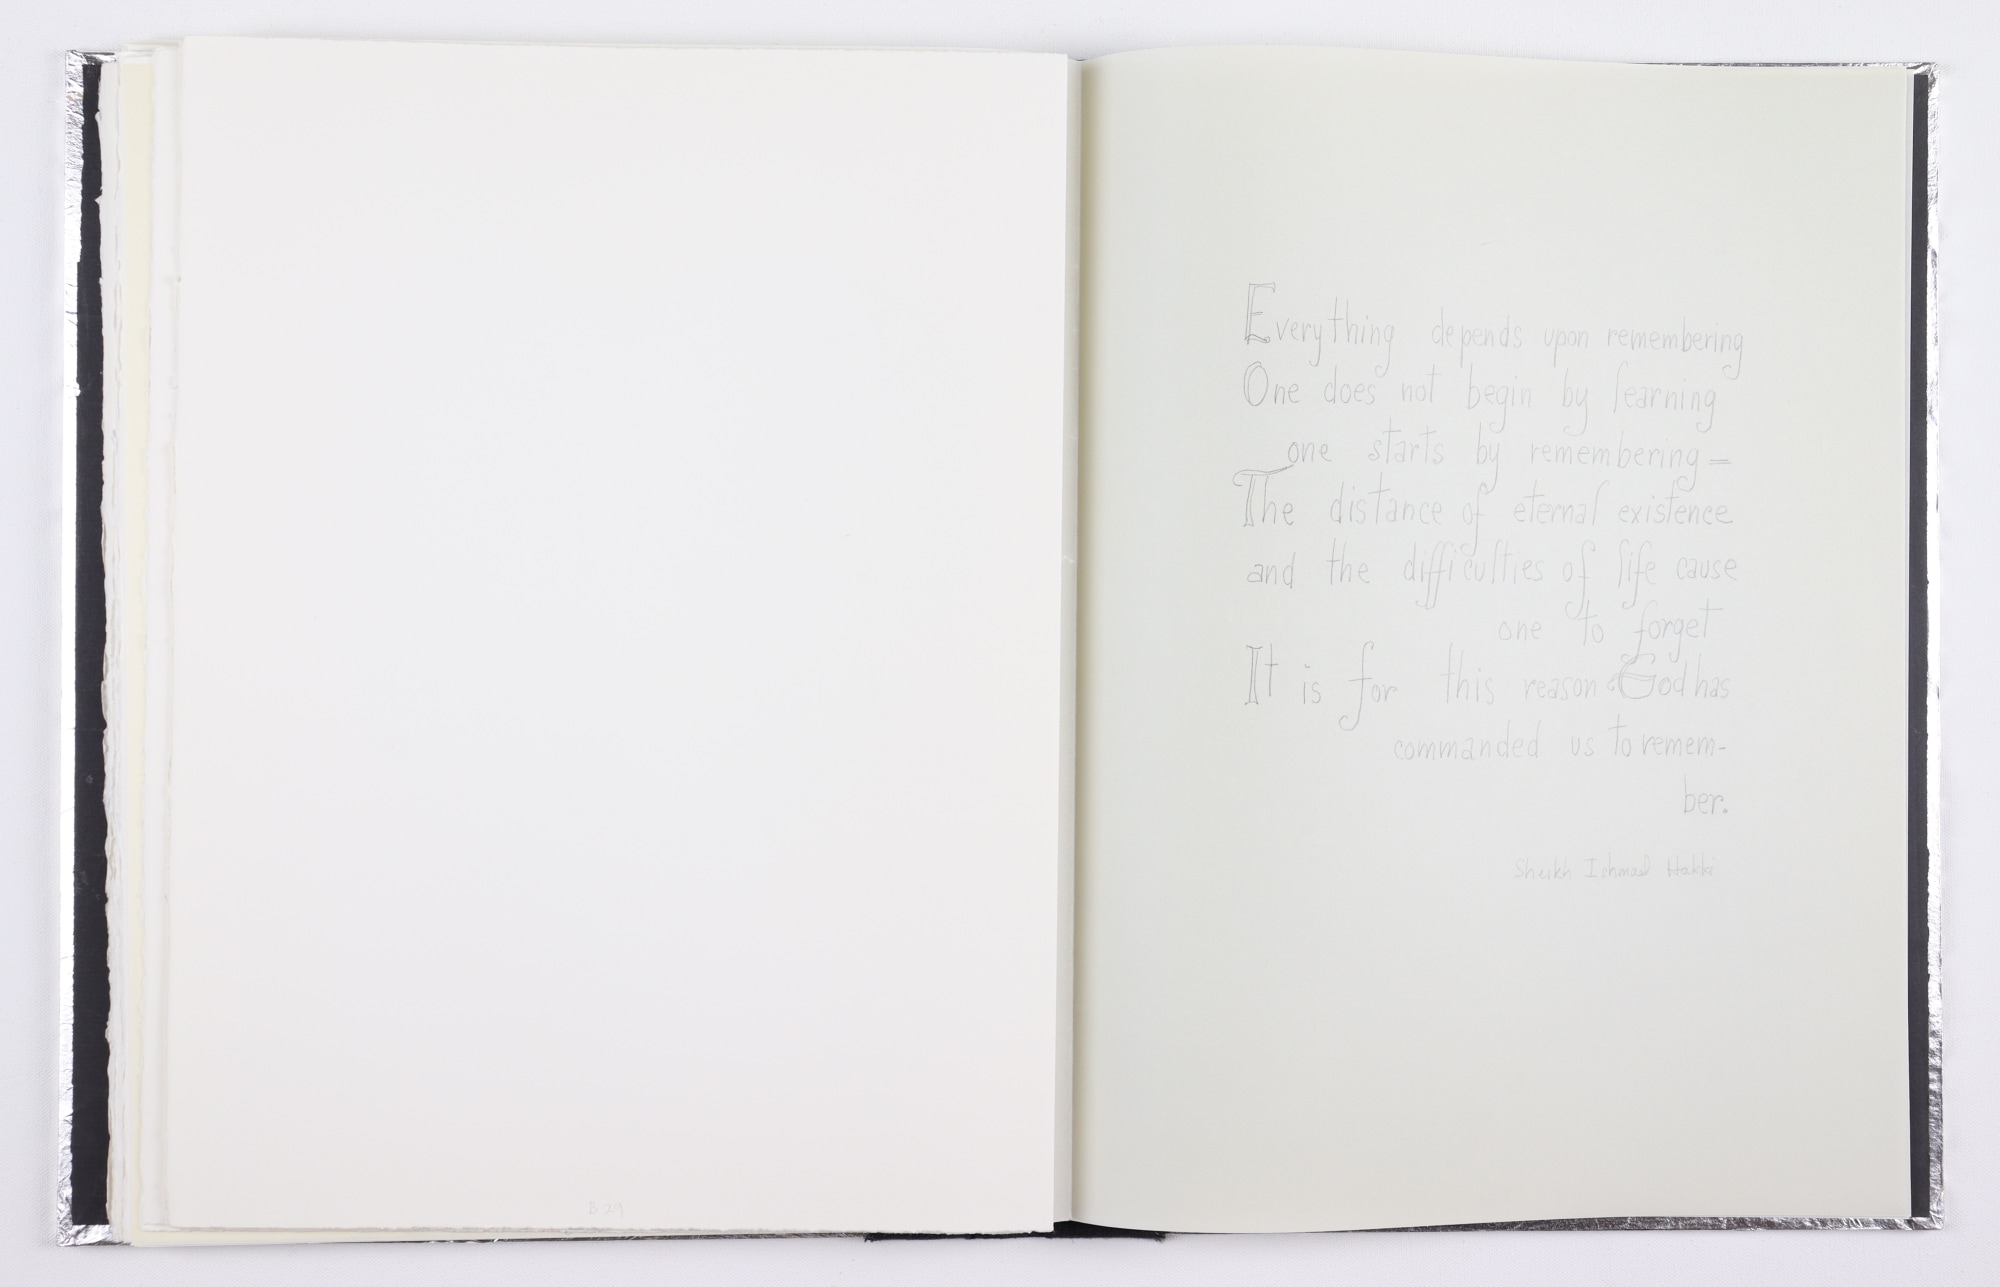 B 29
Everything depends upon remembering
One does not begin by learning
one starts by remembering =
The distance of eternal existence
and the difficulties of life cause
one to forget
It is for this reason God has
commanded us to remem-
ber.
Sheikh Ishmael Hakki